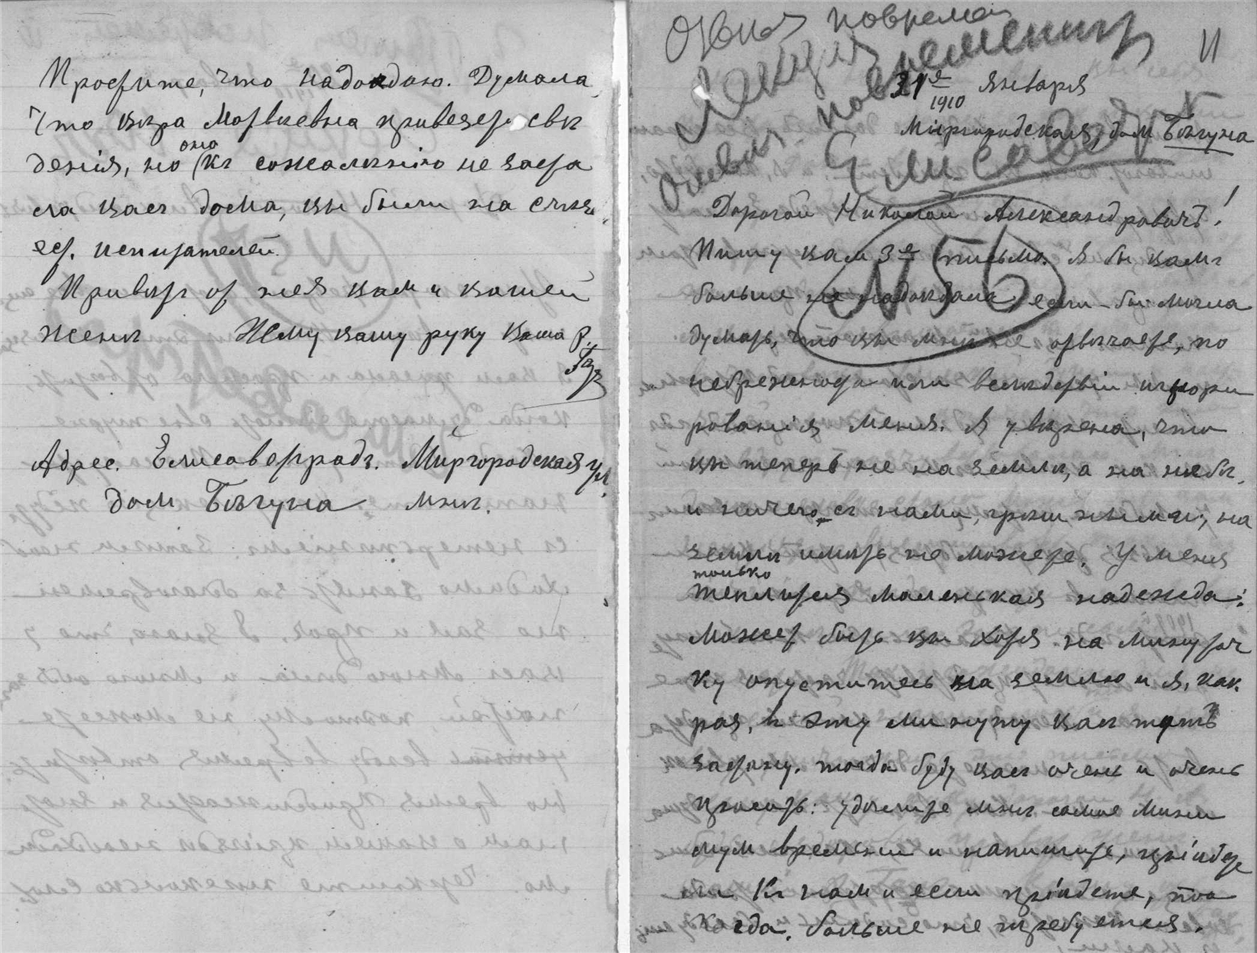 Простите, что надоѣдаю. Думала,
что Вѣра Матвѣевна привезетъ свѣ
дѣнія, но она къ сожалѣнію не заста
ла васъ дома, вы были на съѣз
дѣ. писателей.
Привѣтъ отъ нея вамъ и вашей
женѣ Жму вашу руку Ваша Р.
Адрес. Елисаветградъ. Миргородская ул.
домъ Бѣгуна мнѣ.
11
Лекция
Елисавет
21е января
1910
Миргородская, домъ Бѣгуна
Дорогой Николай Александровичъ!
№56
Пишу вамъ 3е письмо. Я бы вамъ
больше не надоѣдала если-бы могла
думать, что вы мнѣ не отвѣчаете, по
небрежности или вслѣдствіи игнори
рованія меня. Я увѣрена, что
вы теперь не на землѣ, а на небѣ,
и ничего съ нами, грѣшными, на
землѣ имѣть не можете. У меня
только
теплится маленькая надежда:
можетъ быть вы хотя на минуточ
ку опуститесь на землю и я, как
разъ, въ эту минуту васъ
застану. тогда буду васъ очень и очень
просить: удѣлите мнѣ самое мини
мумъ времени и напишите, пріѣдете
ли къ намъ и если пріѣдете, то
когда. больше не требуется.